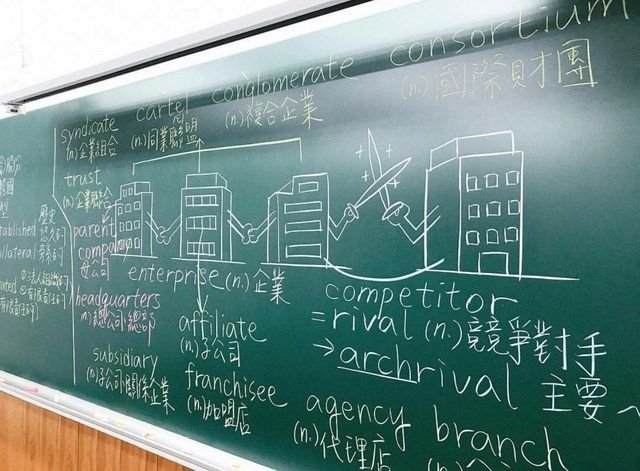 consortium
(n.) 國際財團
conglomerate
(n.) 複合企業
cartel
(n.) 同業聯盟
syndicate
(n.) 企業組合
trust
(n.) 企業聯合
parent
company
母公司
headquarters
(n.) 總公司、總部
subsidiary
(n.) 子公司、關係企業
enterprise (n.) 企業
affiliate
(n.) 子公司
franchisee
(n.) 加盟店
competitor
= rival (n.) 競爭對手
→ archrival 主要
agency
(n.) 代理店
branch
(n.)